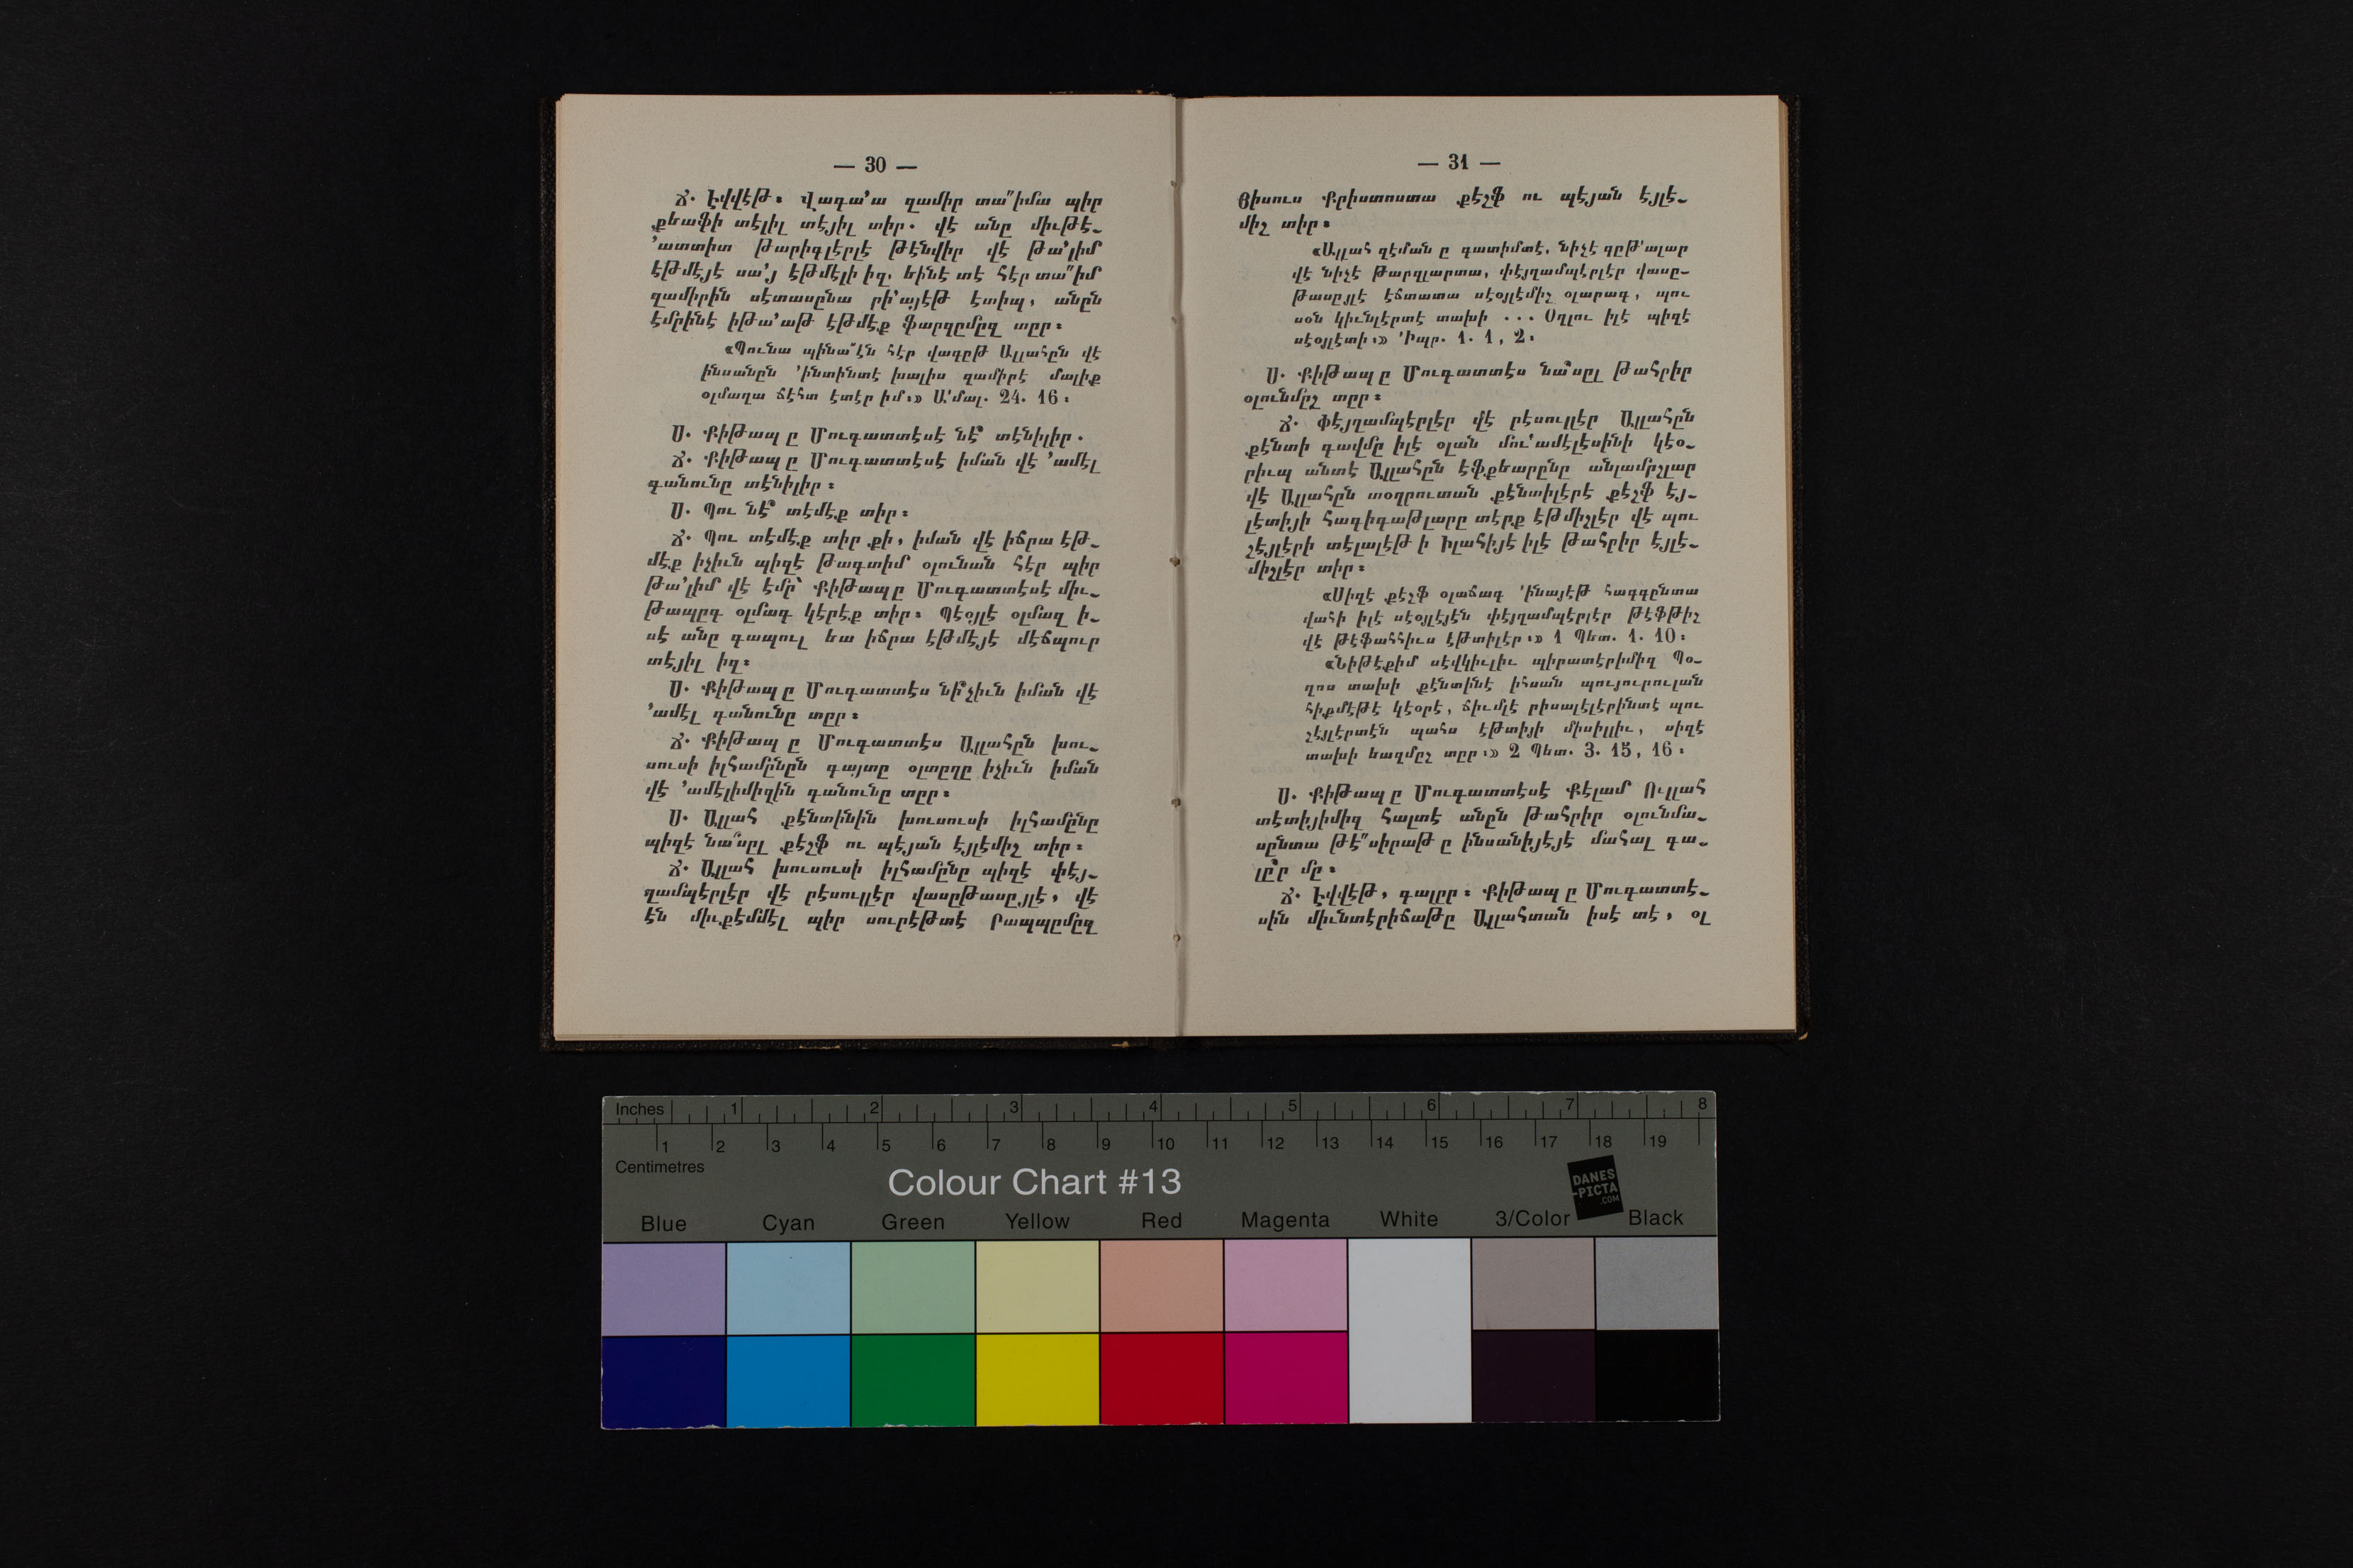 — 30 —
Ճ. Էվվէթ։ Վագա՚ա զամիր տա՞իմա պիր
քեաֆի տէլիլ տէյիլ տիր. վէ անը միւթէ-
՚ատտիտ թարիգլէրլէ թէնվիր վէ թա՚լիմ
էթմէյէ սա՚յ էթմէլի իզ. եինէ տէ հէր տա՞իմ
զամիրին սէտասընա րի՚այէթ էտիպ, անըն
էմրինէ իթա՚աթ էթմէք ֆարզըմըզ տըր։
«Պունա պինա՞էն հէր վագըթ Ալլահըն վէ
ինսանըն ՚ինտինտէ խալիս զամիրէ մալիք
օլմաղա ճէհտ էտէր իմ։» Ա՚մալ. 24. 16։
Ս. Քիթապ ը Մուգատտէսէ նէ՞ տէնիլիր.
Ճ. Քիթապ ը Մուգատտէսէ իման վէ ՚ամէլ
գանունը տէնիլիր։
Ս. Պու նէ՞ տէմէք տիր։
Ճ. Պու տէմէք տիր քի, իման վէ իճրա էթ-
մէք իչիւն պիզէ թագտիմ օլունան հէր պիր
թա՚լիմ վէ էմր՝ Քիթապ ը Մուգատտէսէ միւ-
թապըգ օլմագ կէրէք տիր։ Պէօյլէ օլմազ ի-
սէ անը գապուլ եա իճրա էթմէյէ մէճպուր
տէյիլ իզ։
Ս. Քիթապ ը Մուգատտէս նի՞չիւն իման վէ
՚ամէլ գանունը տըր։
Ճ. Քիթապ ը Մուգատտէս Ալլահըն խու-
սուսի իլհամընըն գայտը օլտըղը իչիւն իման
վէ ՚ամէլիմիզին գանունը տըր։
Ս. Ալլահ քէնտինին խուսուսի իլհամընը
պիզէ նա՞սըլ քէշֆ ու պէյան էյլէմիշ տիր։
Ճ. Ալլահ խուսուսի իլհամընը պիզէ փէյ-
ղամպէրլէր վէ րէսուլլէր վասըթասըյլէ, վէ
էն միւքէմմէլ պիր սուրէթտէ Րապպըմըզ
— 31 —
Յիսուս Քրիստոստա քէշֆ ու պէյան էյլէ-
միշ տիր։
«Ալլահ զէման ը գատիմտէ, նիչէ գըթ՚ալար
վէ նիչէ թարզլարտա, փէյղամպէրլէր վասը-
թասըյլէ էճտատա սէօյլէմիշ օլարագ, պու
սօն կիւնլէրտէ տախի ... Օղլու իլէ պիզէ
սէօյլէտի։» ՚Իպր. 1. 1, 2։
Ս. Քիթապ ը Մուգատտէս նա՞սըլ թահրիր
օլունմըշ տըր։
Ճ. Փէյղամպէրլէր վէ րէսուլլէր Ալլահըն
քէնտի գավմը իլէ օլան մու՚ամէլէսինի կէօ-
րիւպ անտէ Ալլահըն էֆքեարընը անլամըշլար
վէ Ալլահըն տօղրուտան քէնտիլէրէ քէշֆ էյ-
լէտիյի հագիգաթլարը տէրք էթմիշլէր վէ պու
շէյլէրի տէլալէթ ի Իլահիյէ իլէ թահրիր էյլէ-
միշլէր տիր։
«Սիզէ քէշֆ օլաճագ ՚ինայէթ հագգընտա
վահի իլէ սէօյլէյէն փէյղամպէրլէր թէֆթիշ
վէ թէֆահհիւս էթտիլէր։» 1 Պետ. 1. 10։
«Նիթէքիմ սէվկիւլիւ պիրատէրիմիզ Պօ-
ղոս տախի քէնտինէ իհսան պույուրուլան
հիքմէթէ կէօրէ, ճիւմլէ րիսալէլէրինտէ պու
շէյլէրտէն պահս էթտիյի միսիլլիւ, սիզէ
տախի եազմըշ տըր։» 2 Պետ. 3. 15, 16։
Ս. Քիթապ ը Մուգատտէսէ Քէլամ Ուլլահ
տէտիյիմիզ հալտէ անըն թահրիր օլունմա-
սընտա թէ՞սիրաթ ը ինսանիյէյէ մահալ գա-
լը՞ր մը։
Ճ. Էվվէթ, գալըր։ Քիթապ ը Մուգատտէ-
սին միւնտէրիճաթը Ալլահտան իսէ տէ, օլ
Inches 1 2 3 4 5 6 7 8
1 2 3 4 5 6 7 8 9 10 11 12 13 14 15 16 17 18 19
Centimetres
Colour Chart #13
DANES
-PICTA
.COM
Blue Cyan Green Yellow Red Magenta White 3/Color Black